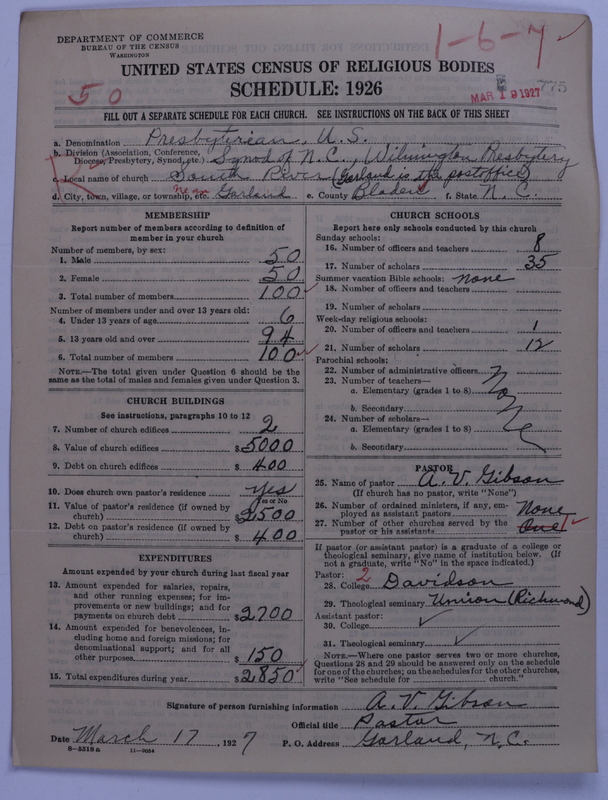 DEPARTMENT OF COMMERCE
BUREAU OF THE CENSUS
WASHINGTON
1-6-7
UNITED STATES CENSUS OF RELIGIOUS BODIES
SCHEDULE: 1926
50
MAR 19 1927
775
FILL OUT A SEPARATE SCHEDULE FOR EACH CHURCH. SEE INSTRUCTIONS ON THE BACK OF THIS SHEET
a. Denomination Presbyterian, U.S.
b. Division (Association, Conference, Diocese, Presbytery, Synod, etc.) Synod of N.C., Wilmington Presbytery
c. Local name of church South River (Garland is the postoffice)
d. City, town, village, or township, etc. near Garland e. County Bladen f. State N.C.
MEMBERSHIP
Report number of members according to definition of
member in your church
Number of members, by sex:
1. Male 50
2. Female 50
3. Total number of members 100
Number of members under and over 13 years old:
4. Under 13 years of age 6
5. 13 years old and over 94
6. Total number of members 100
NOTE.—The total given under Question 6 should be
same as the total of males and females given under Question 3.
CHURCH BUILDINGS
See instructions, paragraphs 10 to 12
7. Number of church edifices 2
8. Value of church edifices $5000
9. Debt on church edifices $400
10. Does church own pastor's residence yes
Yes or No
11. Value of pastor's residence (if owned by
church) $2500
12. Debt on pastor's residence (if owned by
church) $400
EXPENDITURES
Amount expended by your church during last fiscal year
13. Amount expended for salaries, repairs,
and other running expenses; for im-
provements or new buildings; and for
payments on church debt $2700
14. Amount expended for benevolences, in-
cluding home and foreign missions; for
denominational support; and for all
other purposes $150
15. Total expenditures during year $2850
CHURCH SCHOOLS
Report here only schools conducted by this church
Sunday schools:
16. Number of officers and teachers 8
17. Number of scholars 35
Summer vacation Bible schools: none
18. Number of officers and teachers
19. Number of scholars
Week-day religious schools:
20. Number of officers and teachers 1
21. Number of scholars 12
Parochial schools:
22. Number of administrative officers
23. Number of teachers—
a. Elementary (grades 1 to 8)
b. Secondary
None
24. Number of scholars—
a. Elementary (grades 1 to 8)
b. Secondary
PASTOR
25. Name of pastor A. V. Gibson
(If church has no pastor, write "None")
26. Number of ordained ministers, if any, em-
ployed as assistant pastors None
27. Number of other churches served by the
pastor or his assistants One 1
If pastor (or assistant pastor) is a graduate of a college or
theological seminary, give name of institution below. (If
not a graduate, write "No" in the space indicated.)
Pastor: 2
28. College Davidson
29. Theological seminary Union (Richmond)
Assistant pastor:
30. College
31. Theological seminary
NOTE.—Where one pastor serves two or more churches,
Questions 28 and 29 should be answered only on the schedule
for one of the churches; on the schedules for the other churches,
write "See schedule for church."
Signature of person furnishing information A. V. Gibson
Official title Pastor
Date March 17, 1927 P. O. Address Garland, N.C.
8-5518a 11-9054